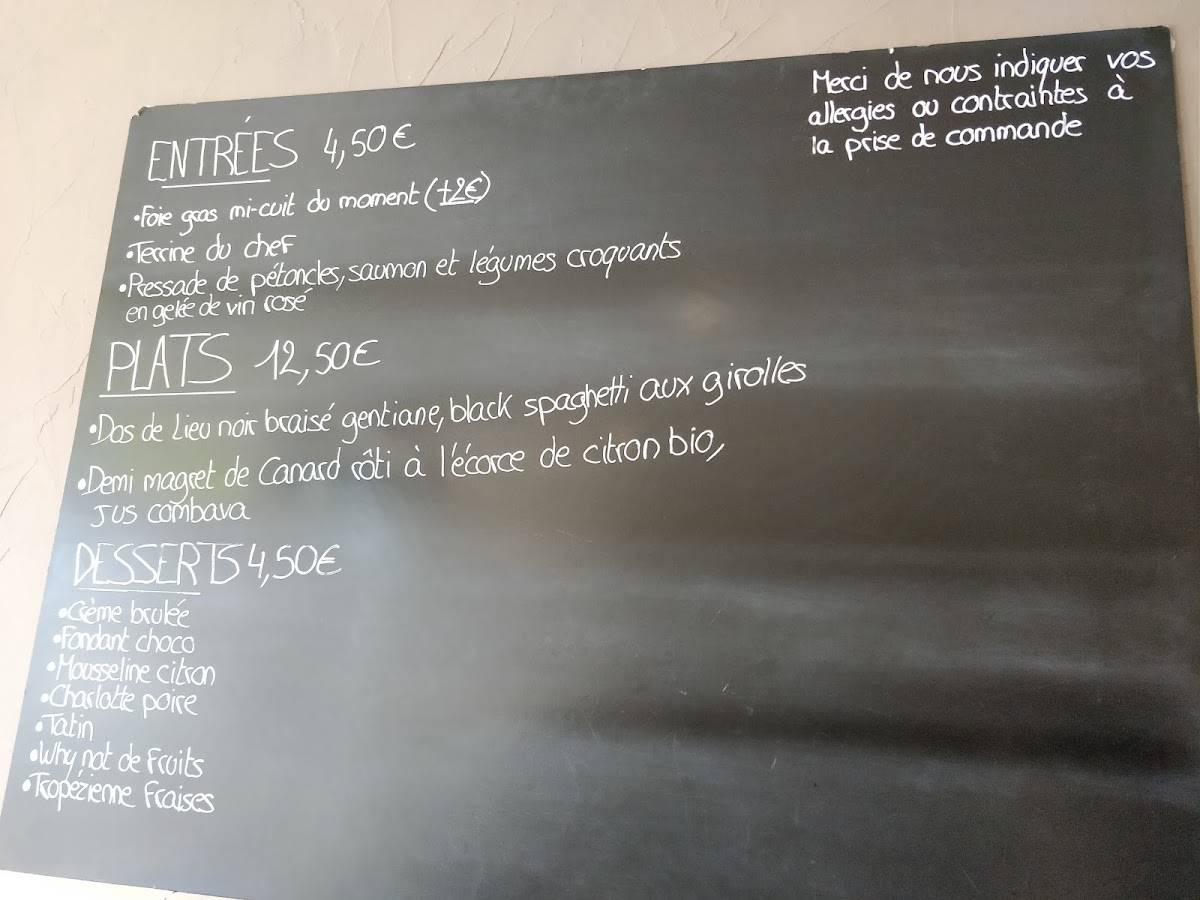 Merci de nous indiquer vos
allergies ou contraintes à
la prise de commande
ENTRÉES 4,50€
•Foie gras mi-cuit du moment (+2€)
•Terrine du chef
•Pressade de pétoncles, saumon et légumes croquants
en gelée de vin rosé
PLATS 12,50€
•Dos de Lieu noir braisé gentiane, black spaghetti aux girolles
•Demi magret de Canard rôti à l'écorce de citron bio,
jus combava
DESSERTS 4,50€
•Crème brulée
•Fondant choco
•Mousseline citron
•Charlotte poire
•Tatin
•Why not de Fruits
•Tropézienne Fraises